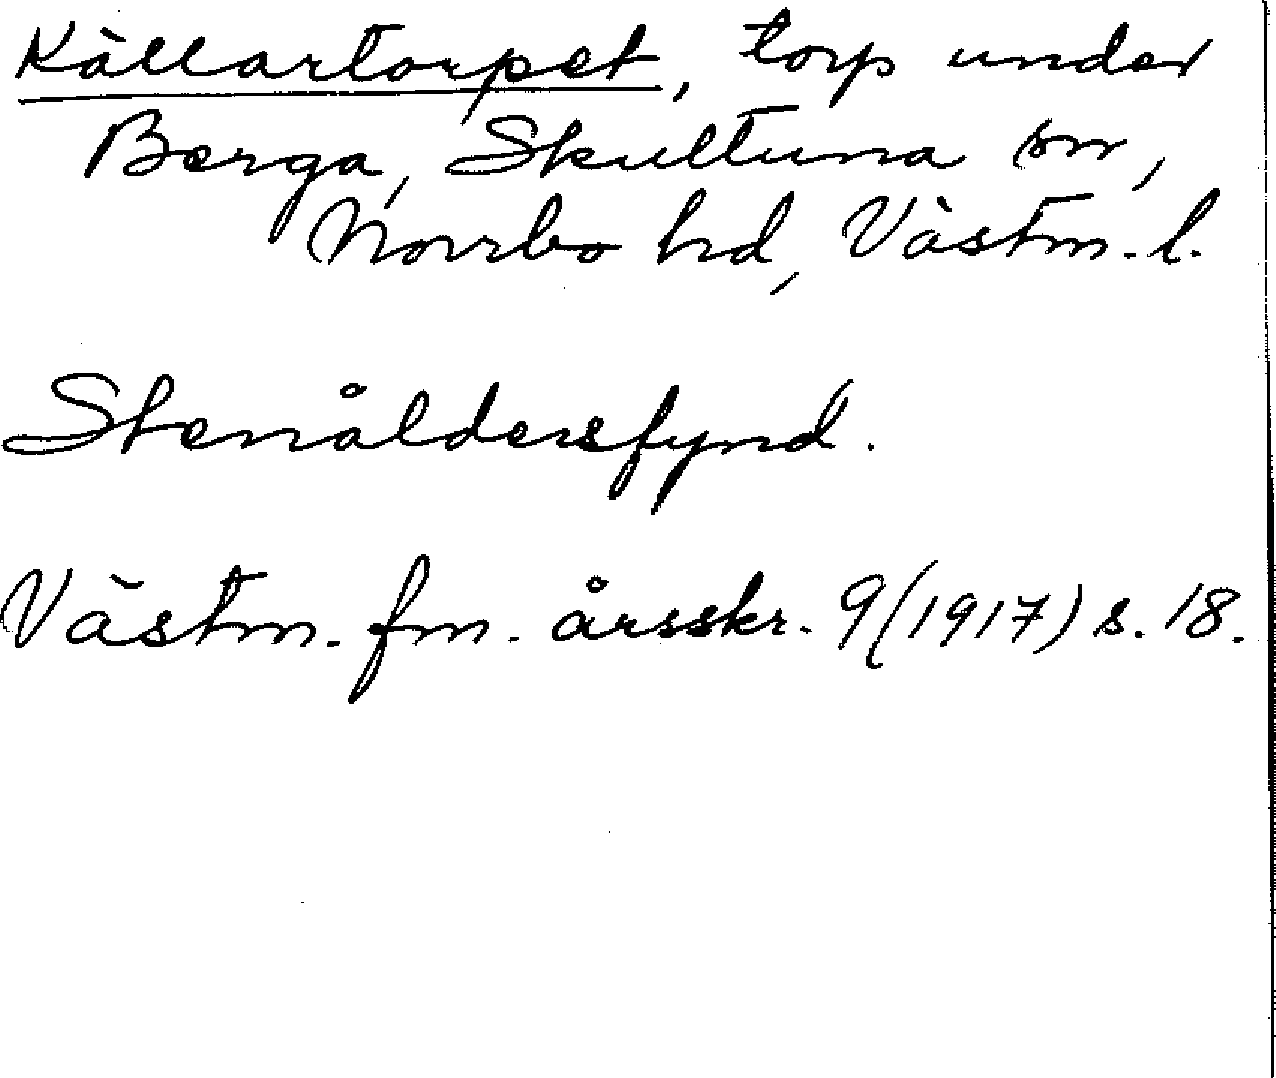 Källartorpet, torp under
Berga, Skultuna sn,
Norrbo hd, Västm. l.
Stenåldersfynd.
Västm. fm. årsskr. 9 (1917) s. 18.